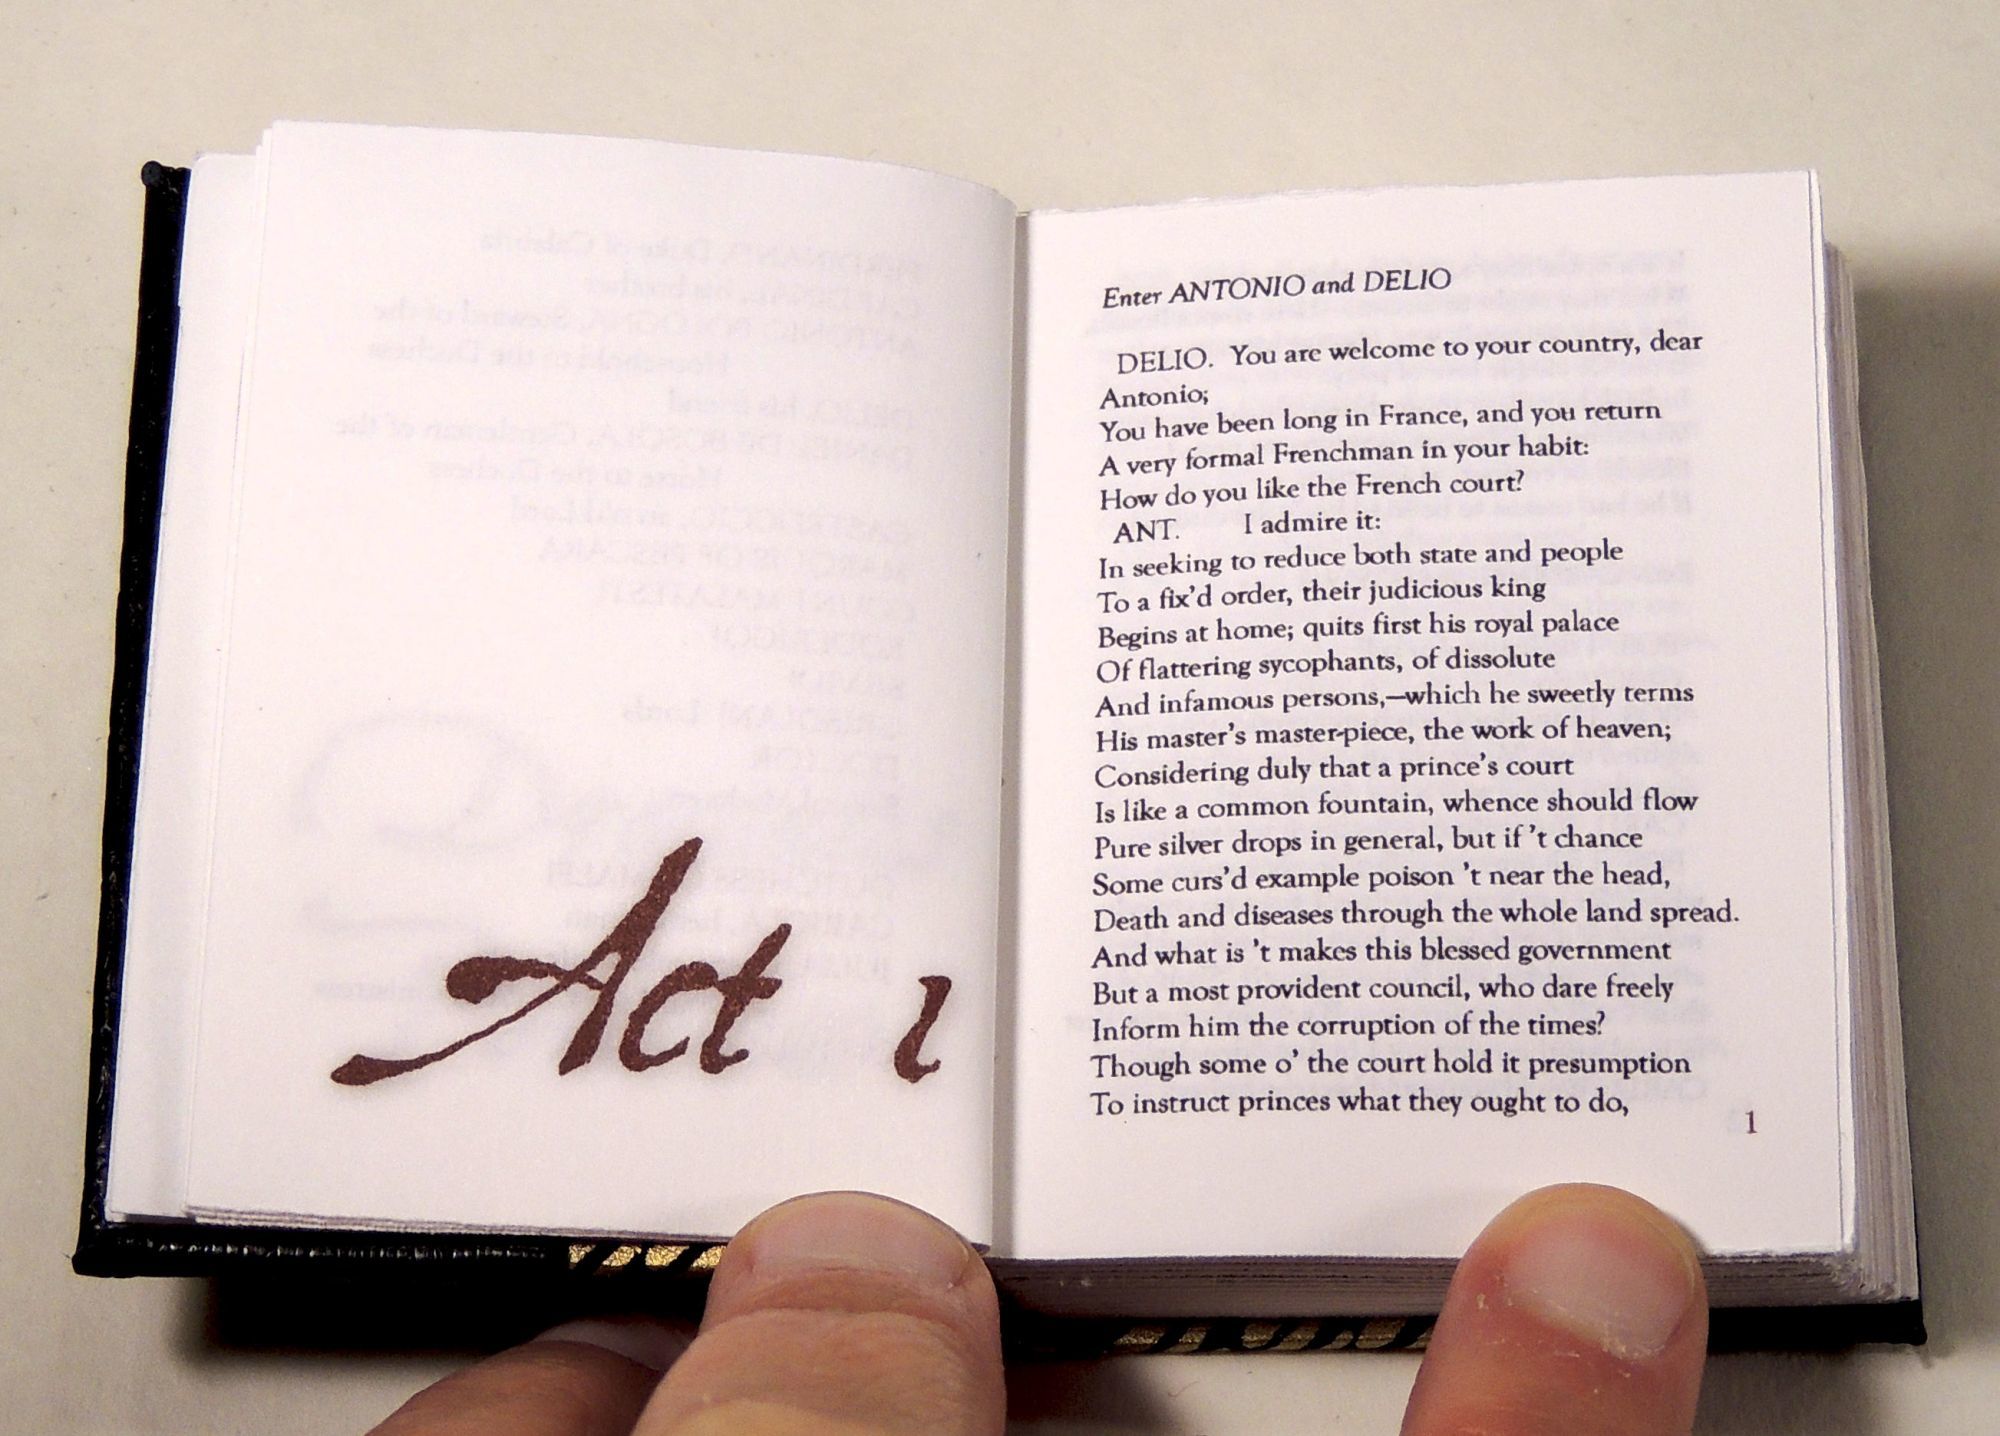 Act 1
Enter ANTONIO and DELIO
DELIO. You are welcome to your country, dear
Antonio;
You have been long in France, and you return
A very formal Frenchman in your habit:
How do you like the French court?
ANT. I admire it:
In seeking to reduce both state and people
To a fix'd order, their judicious king
Begins at home; quits first his royal palace
Of flattering sycophants, of dissolute
And infamous persons,—which he sweetly terms
His master's master-piece, the work of heaven;
Considering duly that a prince's court
Is like a common fountain, whence should flow
Pure silver drops in general, but if 't chance
Some curs'd example poison 't near the head,
Death and diseases through the whole land spread.
And what is 't makes this blessed government
But a most provident council, who dare freely
Inform him the corruption of the times?
Though some o' the court hold it presumption
To instruct princes what they ought to do,
1